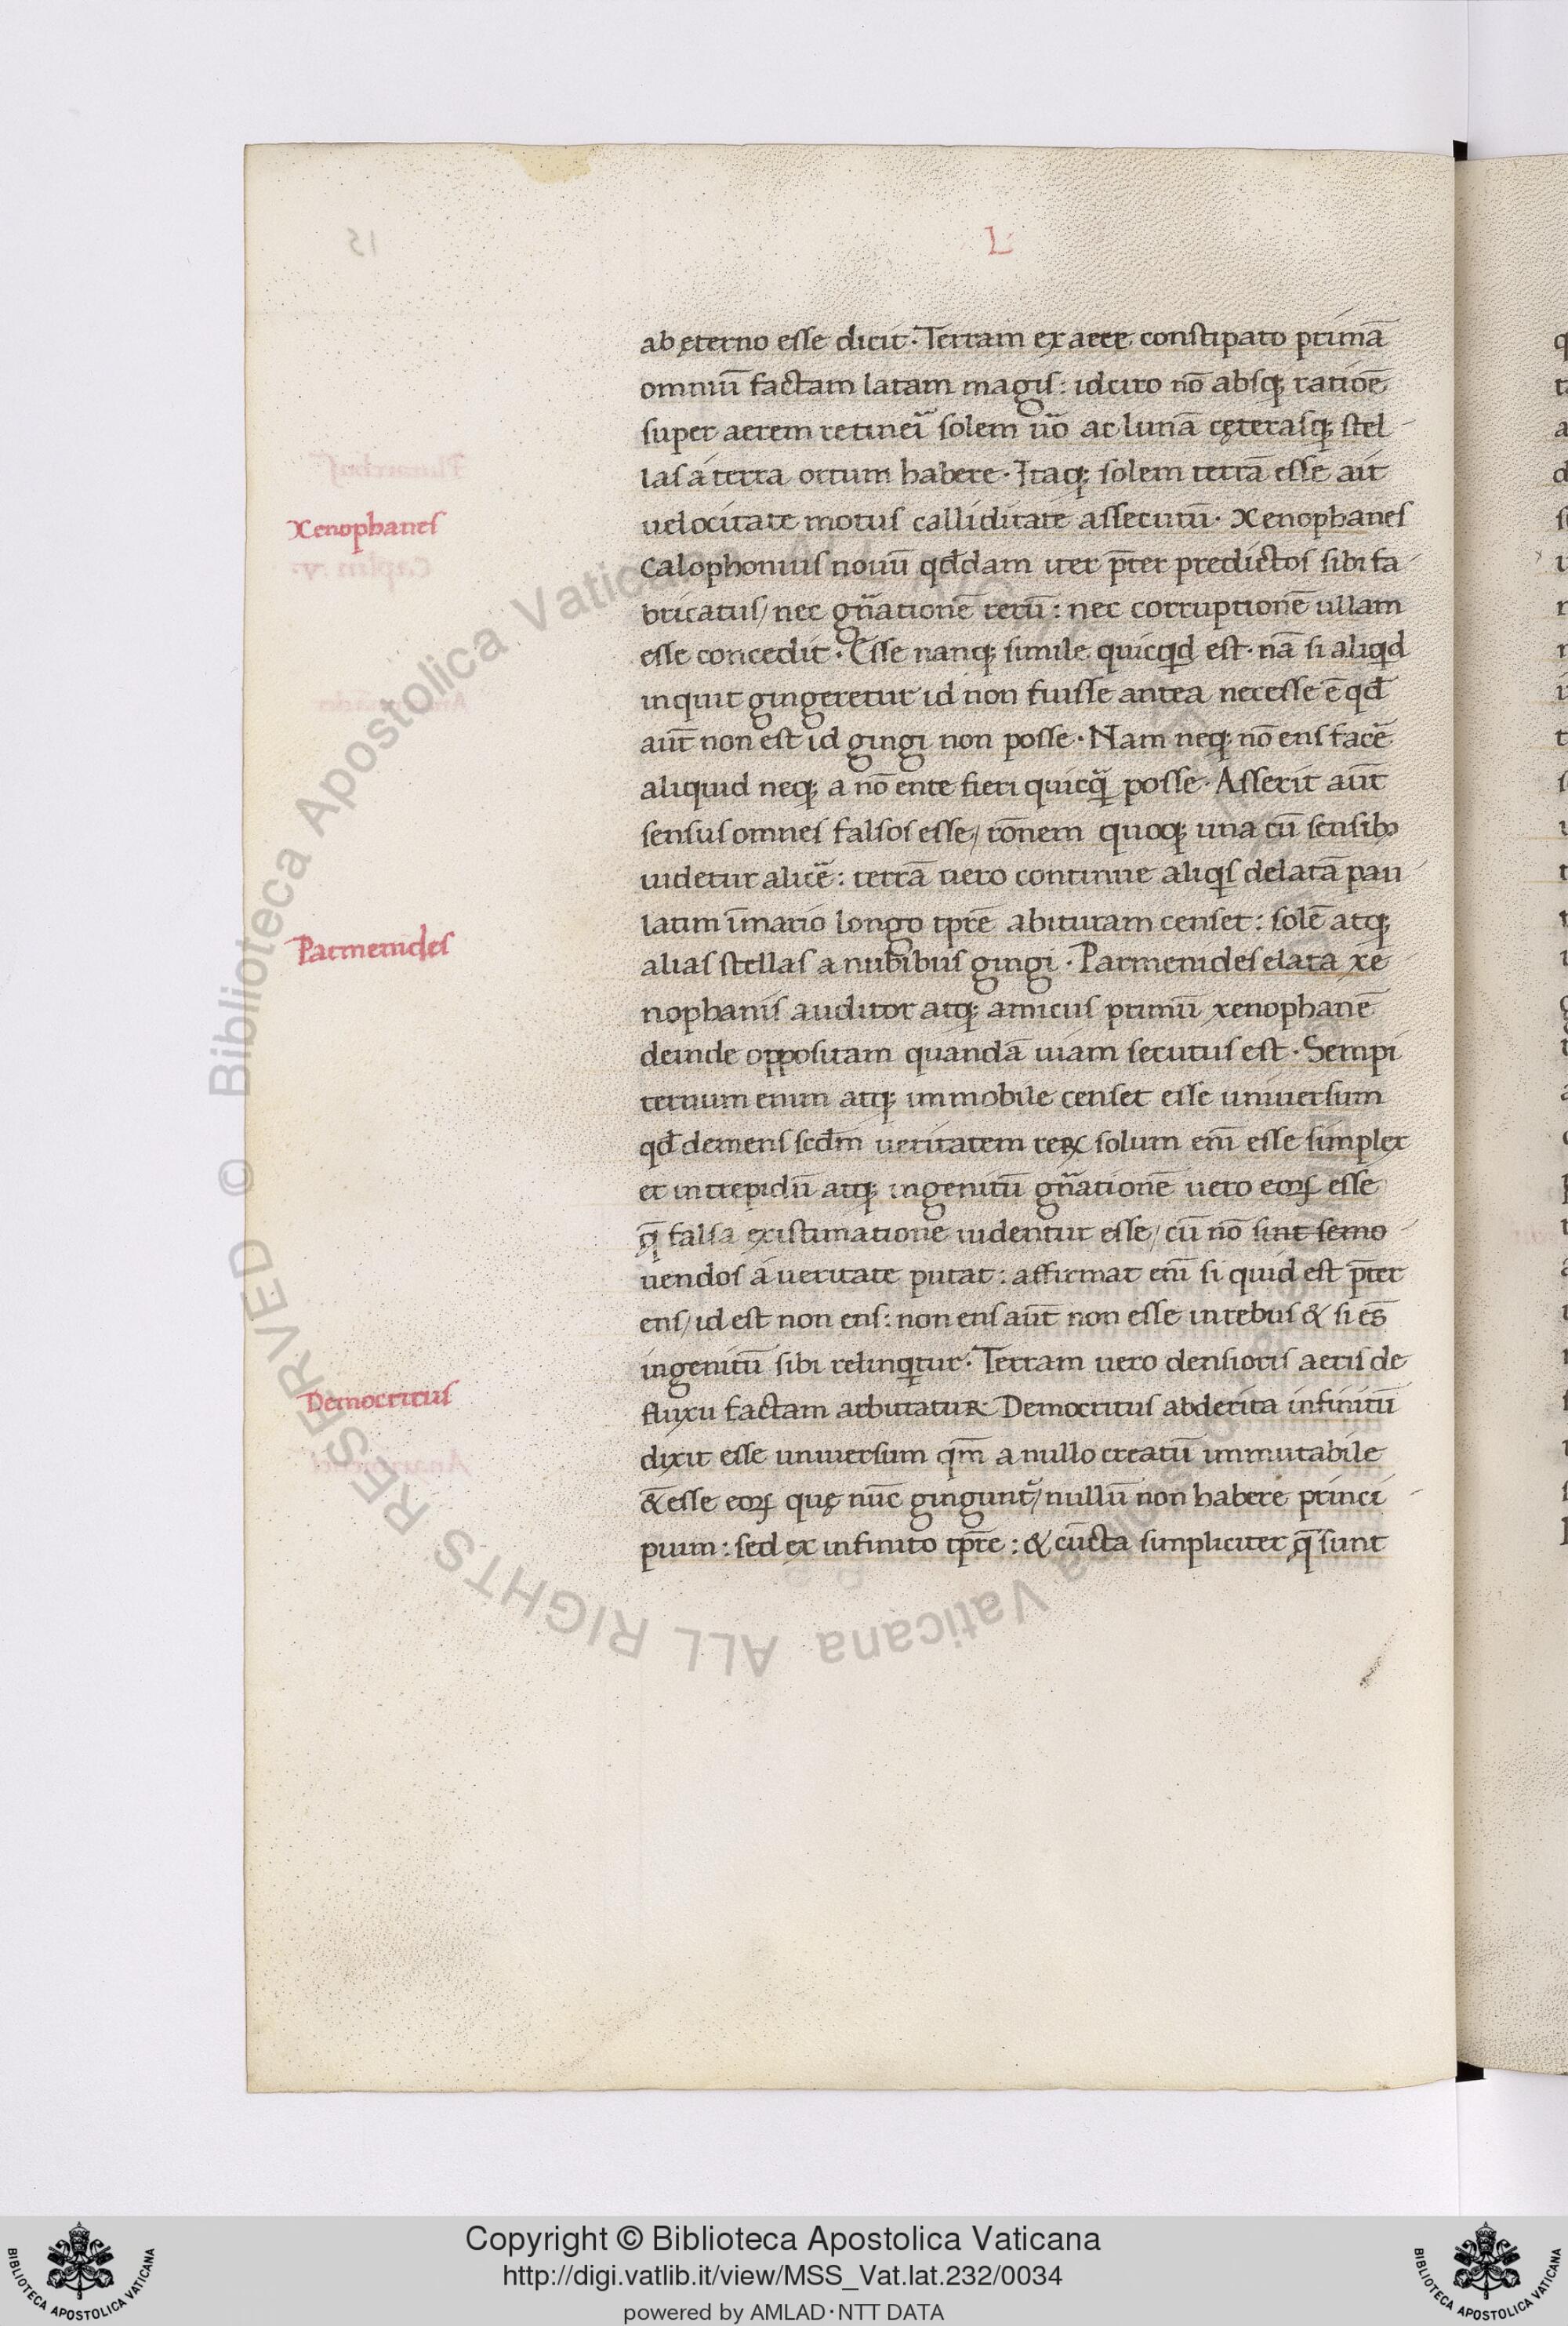 L
ab ęterno esse dicit. Terram ex aere constipato primā
omniū factam latam magis: idcirco nō absq; ratiōe
super aerem retineri solem ūo ac lunā cęterasq; stel
las a terra ortum habere. Itaq; solem terrā esse ait
Xenophanes
uelocitate motus calliditate assecutū. Xenophanes
Calophonius nouū qđdam iter p̄ter predictos sibi fa
bricatus/ nec gñationē rerū: nec corruptionē ullam
esse concedit. Esse nanq; simile quicqd est. nā si aliqd
inquit gingeretur id non fuisse antea necesse ē qđ
aut̄ non est id gingi non posse. Nam neq; nō ens facē
aliquid neq; a nō ente fieri quicq̄ posse. Asserit aut̄
sensus omnes falsos esse/ rōnem quoq; una cū sensib;
uidetur alicē: terrā uero continue aliqs delatā pau
latim ī mario longo tp̄re abituram censet: solē atq;
Parmenides
alias stellas a nubibus gingi. Parmenides elata xe
nophanis auditor atq; amicus primū xenophanē
deinde oppositam quandā uiam secutus est. Sempi
ternum enim atq; immobile censet esse uniuersum
qđ demens scđm ueritatem reꝝ solum em̄ esse simplex
et intrepidū atq; ingenitū gñationē uero eoꝝ esse
q̄ falsa existimatione uidentur esse/ cū nō sint semo
uendos a ueritate putat: affirmat em̄ si quid est p̄ter
ens/ id est non ens: non ens aut̄ non esse in rebus & si ēs
ingenitū sibi relinqtur. Terram uero densioris aeris de
Democritus
fluxu factam arbitratur Democritus abderita infinitū
dixit esse uniuersum qm̄ a nullo creatū immutabile
& esse eoꝝ quę nūc gingunt̄/ nullū non habere princi
pium: sed ex infinito tp̄re: & cūcta simpliciter q̄ sunt
© Biblioteca Apostolica Vaticana ALL RIGHTS RESERVED
Copyright © Biblioteca Apostolica Vaticana
http://digi.vatlib.it/view/MSS_Vat.lat.232/0034
powered by AMLAD·NTT DATA
BIBLIOTECA APOSTOLICA VATICANA
BIBLIOTECA APOSTOLICA VATICANA